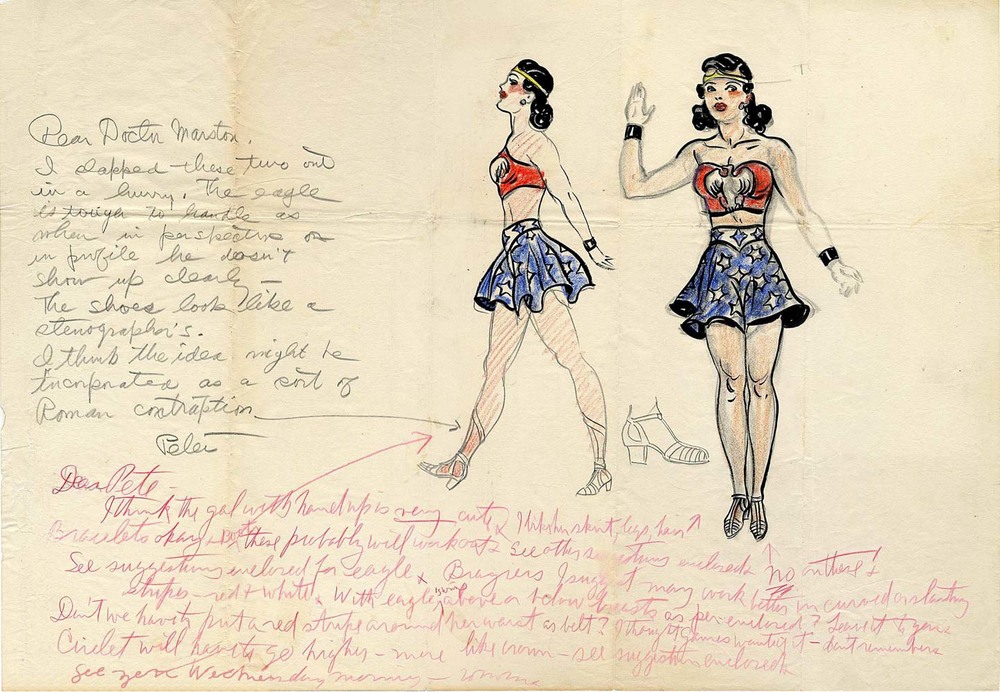 Dear Doctor Marston,
I slapped these two out
in a hurry. The eagle
is tough to handle as
when in perspective or
in profile he doesn't
show up clearly —
The shoes look like a
stenographer's.
I think the idea might be
incorporated as a sort of
Roman contraption
Peter
Dear Pete —
I think the gal with hand up is very cute. I like her skirt, legs, hair
Bracelets okay + boots these probably will work out. See other suggestions enclosed. No on these +
See suggestions enclosed for eagle. I suggest may work better in curved or slanting
stripes — red + white. With eagle's wings above or below breasts as per enclosed? Leave it to you.
Don't we have to put a red stripe around her waist as belt? I thought Gaines wanted it — don't remember.
Circlet will have to go higher — more like crown — see suggestion enclosed.
See you Wednesday morning —